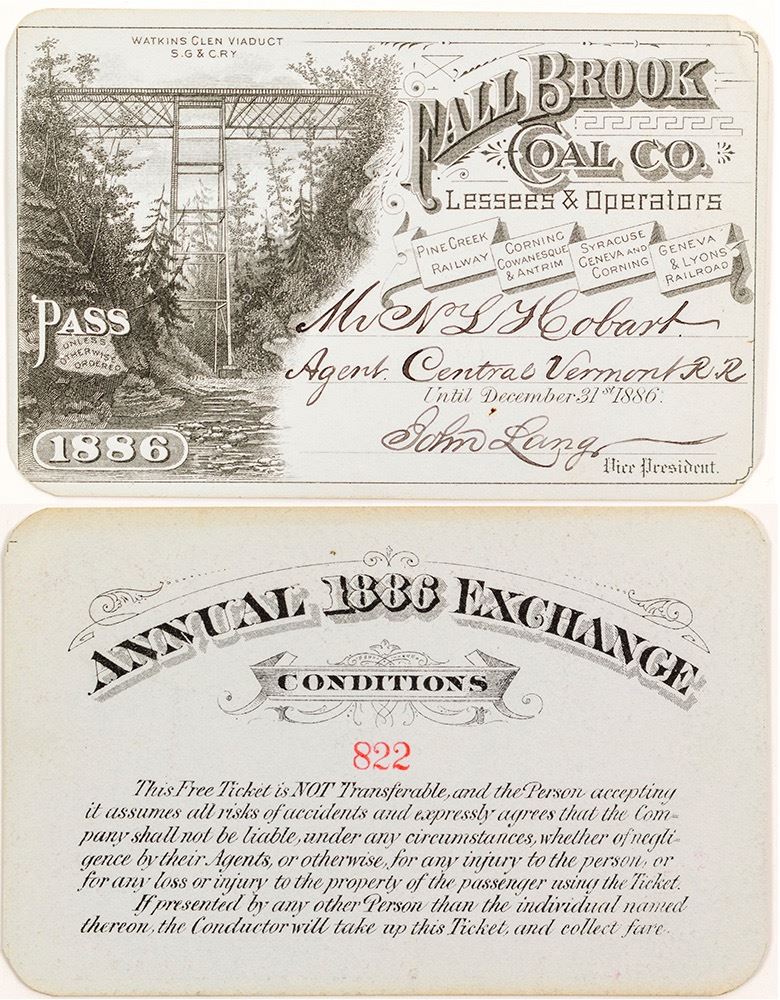 WATKINS GLEN VIADUCT
S.G & C.RY
FALL BROOK
COAL CO.
Lessees & Operators
PINE CREEK
RAILWAY
CORNING
COWANESQUE
& ANTRIM
SYRACUSE
GENEVA AND
CORNING
GENEVA
& LYONS
RAILROAD
PASS
UNLESS
OTHERWISE
ORDERED
Mr N L Hobart
Agent. Central Vermont R.R
Until December 31st 1886.
John Lang
Vice President.
1886
ANNUAL 1886 EXCHANGE
CONDITIONS
822
This Free Ticket is NOT Transferable, and the Person accepting
it assumes all risks of accidents and expressly agrees that the Com=
pany shall not be liable, under any circumstances, whether of negli=
gence by their Agents, or otherwise, for any injury to the person, or
for any loss or injury to the property of the passenger using the Ticket.
If presented by any other Person than the individual named
thereon, the Conductor will take up this Ticket, and collect fare.